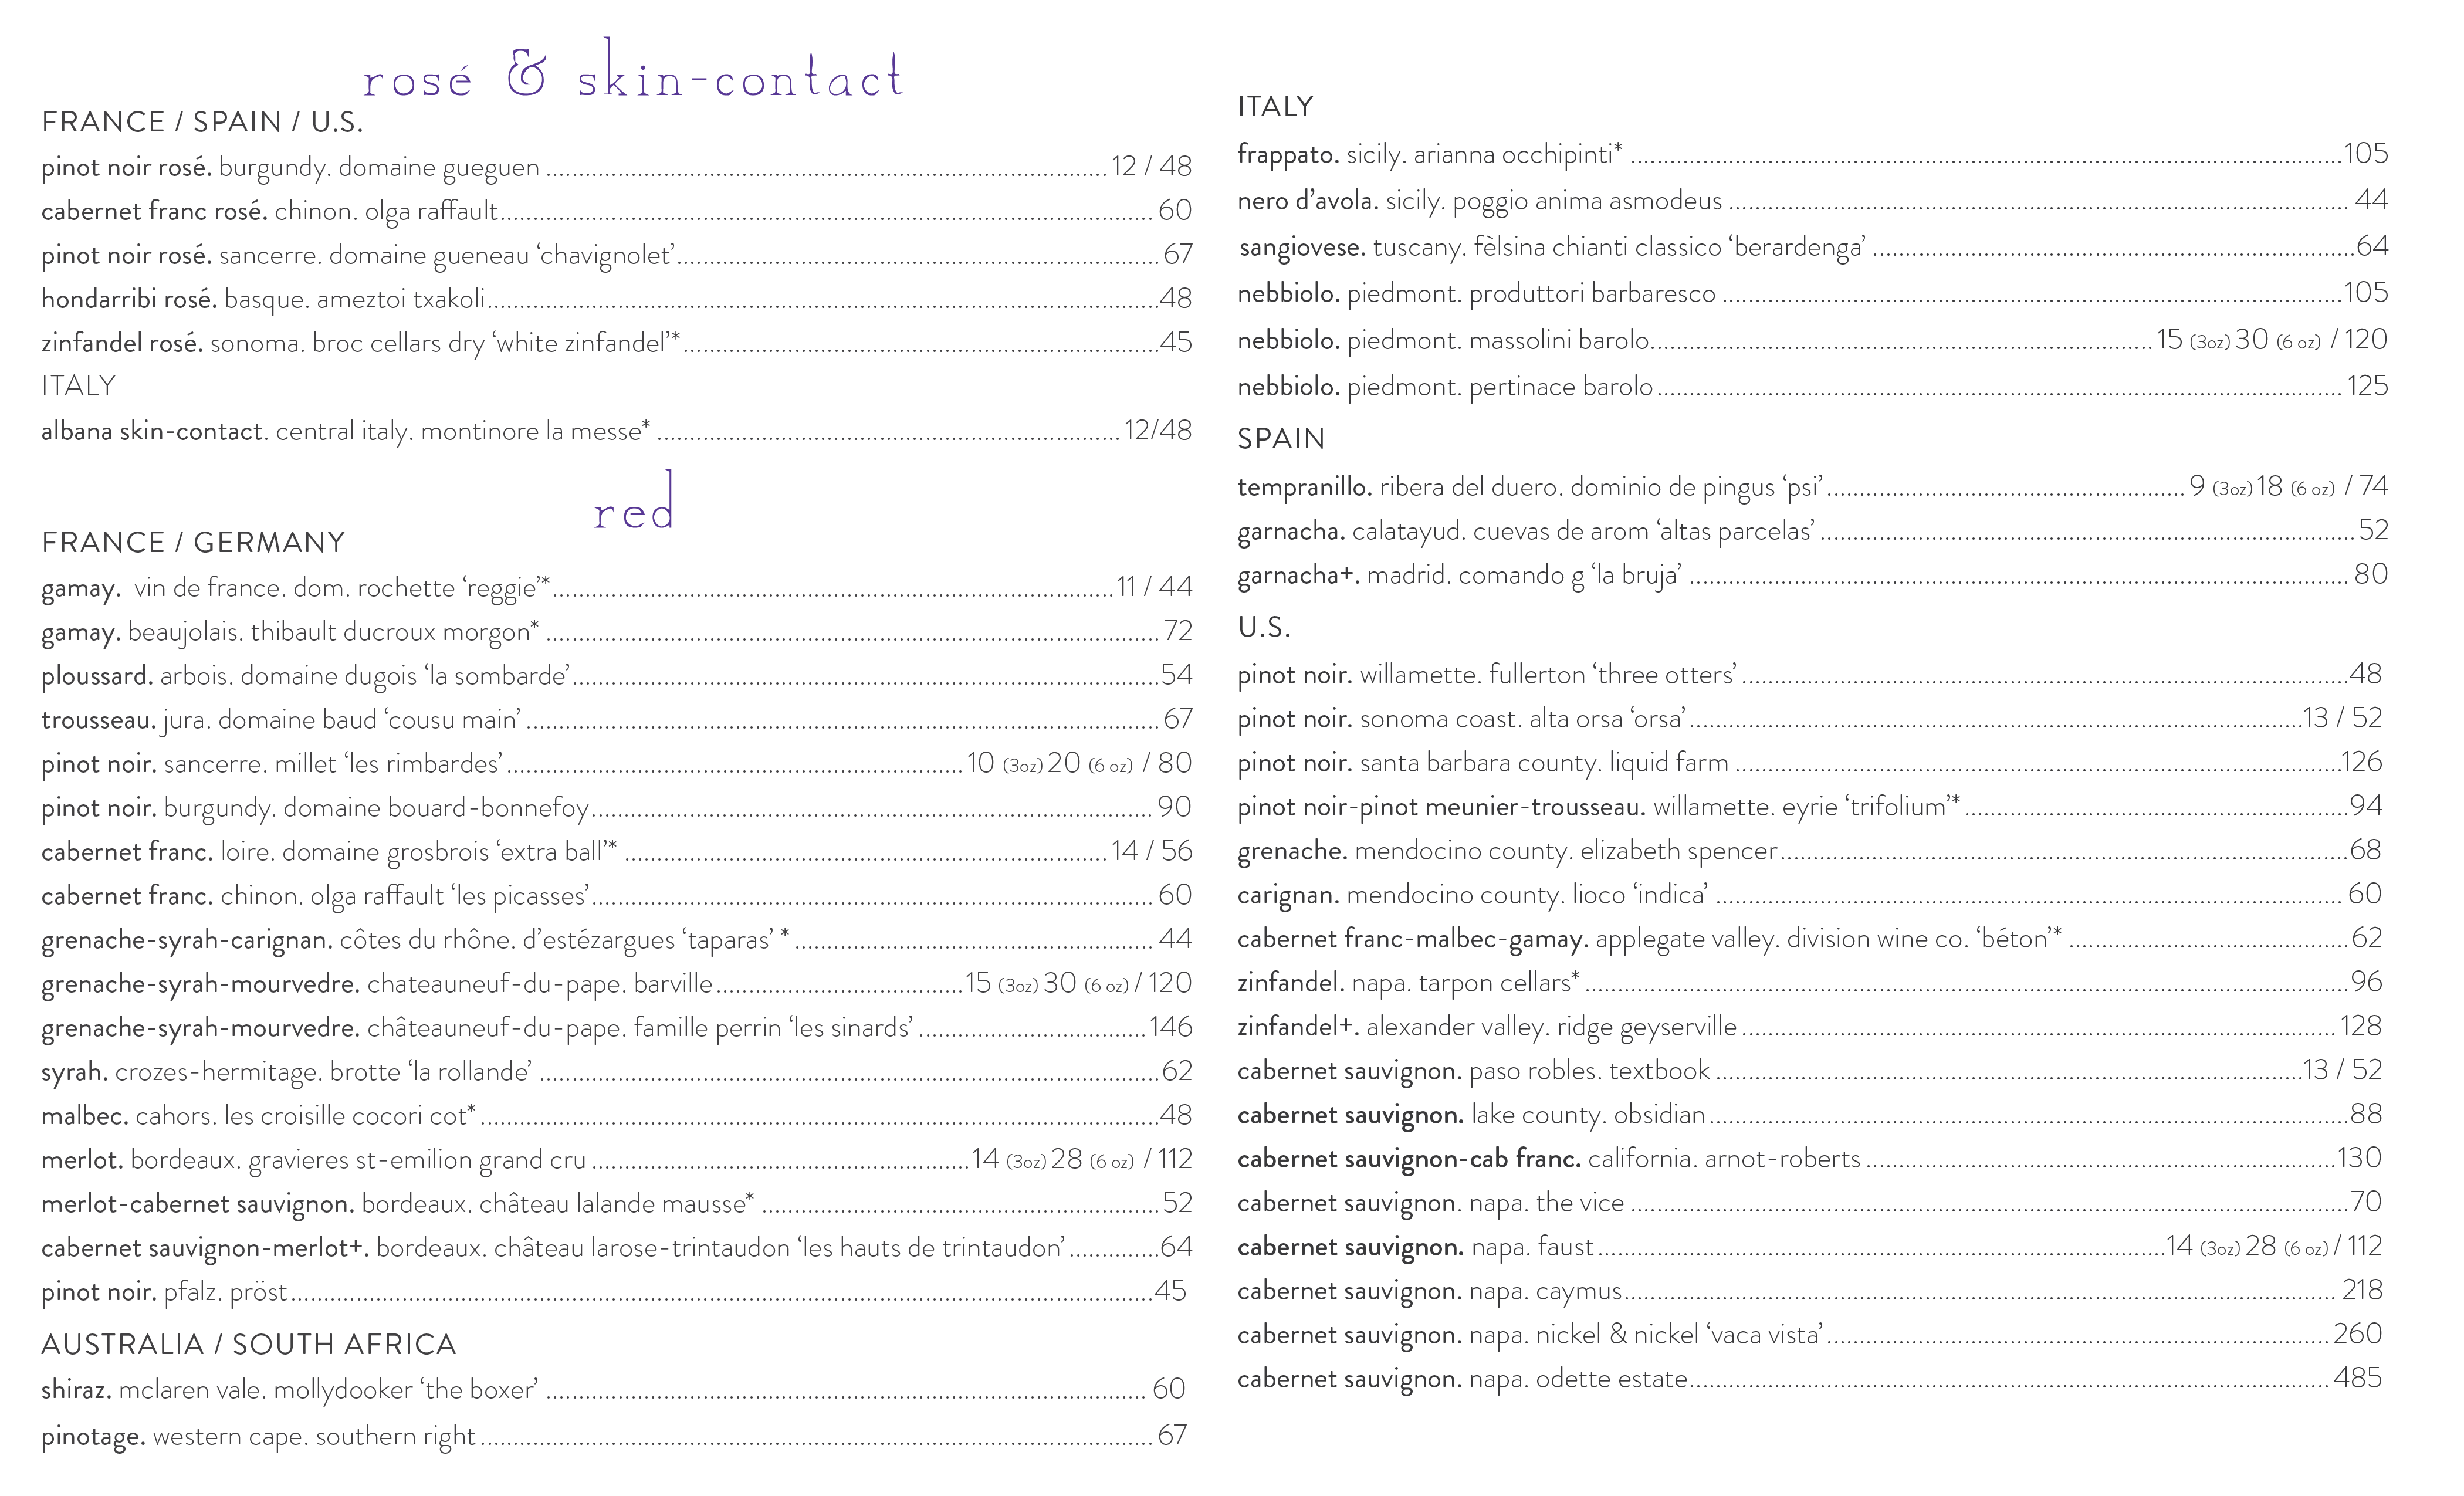 rosé & skin-contact
FRANCE / SPAIN / U.S.
pinot noir rosé. burgundy. domaine gueguen ........ 12 / 48
cabernet franc rosé. chinon. olga raffault ........ 60
pinot noir rosé. sancerre. domaine gueneau ‘chavignolet’ ........ 67
hondarribi rosé. basque. ameztoi txakoli ........ 48
zinfandel rosé. sonoma. broc cellars dry ‘white zinfandel’* ........ 45
ITALY
albana skin-contact. central italy. montinore la messe* ........ 12/48
red
FRANCE / GERMANY
gamay. vin de france. dom. rochette ‘reggie’* ........ 11 / 44
gamay. beaujolais. thibault ducroux morgon* ........ 72
ploussard. arbois. domaine dugois ‘la sombarde’ ........ 54
trousseau. jura. domaine baud ‘cousu main’ ........ 67
pinot noir. sancerre. millet ‘les rimbardes’ ........ 10 (3oz) 20 (6 oz) / 80
pinot noir. burgundy. domaine bouard-bonnefoy ........ 90
cabernet franc. loire. domaine grosbrois ‘extra ball’* ........ 14 / 56
cabernet franc. chinon. olga raffault ‘les picasses’ ........ 60
grenache-syrah-carignan. côtes du rhône. d’estézargues ‘taparas’ * ........ 44
grenache-syrah-mourvedre. chateauneuf-du-pape. barville ........ 15 (3oz) 30 (6 oz) / 120
grenache-syrah-mourvedre. châteauneuf-du-pape. famille perrin ‘les sinards’ ........ 146
syrah. crozes-hermitage. brotte ‘la rollande’ ........ 62
malbec. cahors. les croisille cocori cot* ........ 48
merlot. bordeaux. gravieres st-emilion grand cru ........ 14 (3oz) 28 (6 oz) / 112
merlot-cabernet sauvignon. bordeaux. château lalande mausse* ........ 52
cabernet sauvignon-merlot+. bordeaux. château larose-trintaudon ‘les hauts de trintaudon’ ........ 64
pinot noir. pfalz. pröst ........ 45
AUSTRALIA / SOUTH AFRICA
shiraz. mclaren vale. mollydooker ‘the boxer’ ........ 60
pinotage. western cape. southern right ........ 67
ITALY
frappato. sicily. arianna occhipinti* ........ 105
nero d’avola. sicily. poggio anima asmodeus ........ 44
sangiovese. tuscany. fèlsina chianti classico ‘berardenga’ ........ 64
nebbiolo. piedmont. produttori barbaresco ........ 105
nebbiolo. piedmont. massolini barolo ........ 15 (3oz) 30 (6 oz) / 120
nebbiolo. piedmont. pertinace barolo ........ 125
SPAIN
tempranillo. ribera del duero. dominio de pingus ‘psi’ ........ 9 (3oz) 18 (6 oz) / 74
garnacha. calatayud. cuevas de arom ‘altas parcelas’ ........ 52
garnacha+. madrid. comando g ‘la bruja’ ........ 80
U.S.
pinot noir. willamette. fullerton ‘three otters’ ........ 48
pinot noir. sonoma coast. alta orsa ‘orsa’ ........ 13 / 52
pinot noir. santa barbara county. liquid farm ........ 126
pinot noir-pinot meunier-trousseau. willamette. eyrie ‘trifolium’* ........ 94
grenache. mendocino county. elizabeth spencer ........ 68
carignan. mendocino county. lioco ‘indica’ ........ 60
cabernet franc-malbec-gamay. applegate valley. division wine co. ‘béton’* ........ 62
zinfandel. napa. tarpon cellars* ........ 96
zinfandel+. alexander valley. ridge geyserville ........ 128
cabernet sauvignon. paso robles. textbook ........ 13 / 52
cabernet sauvignon. lake county. obsidian ........ 88
cabernet sauvignon-cab franc. california. arnot-roberts ........ 130
cabernet sauvignon. napa. the vice ........ 70
cabernet sauvignon. napa. faust ........ 14 (3oz) 28 (6 oz) / 112
cabernet sauvignon. napa. caymus ........ 218
cabernet sauvignon. napa. nickel & nickel ‘vaca vista’ ........ 260
cabernet sauvignon. napa. odette estate ........ 485